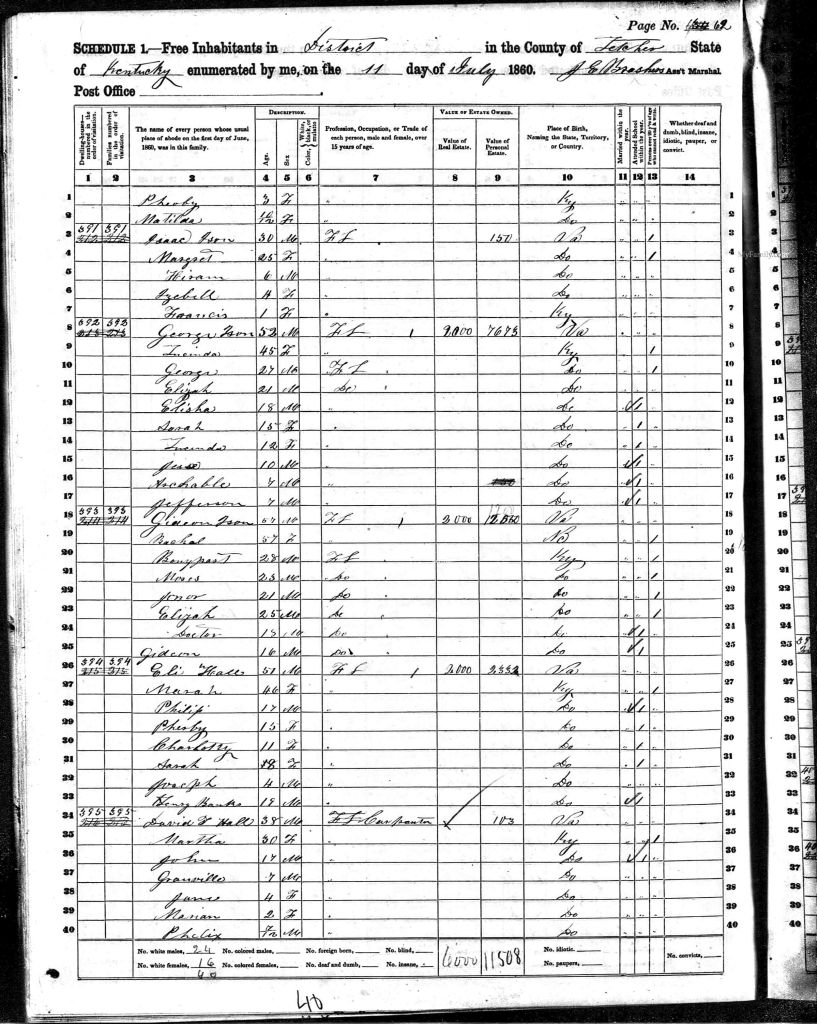 Page No. 62
SCHEDULE 1.—Free Inhabitants in District in the County of Letcher State
of Kentucky enumerated by me, on the 11 day of July 1860. J E Ass't Marshal
Post Office
Dwelling-house—numbered in the order of visitation. Families numbered in the order of visitation. The name of every person whose usual place of abode on the first day of June, 1860, was in this family. DESCRIPTION. Age. Sex Color, White, black, or mulatto Profession, Occupation, or Trade of each person, male and female, over 15 years of age. VALUE OF ESTATE OWNED. Value of Real Estate. Value of Personal Estate. Place of Birth, Naming the State, Territory, or Country. Married within the year. Attended School within the year. Whether deaf and dumb, blind, insane, idiotic, pauper, or convict.
1 2 3 4 5 6 7 8 9 10 11 12 13 14
1 Pheoby 3 F " Ky 1
2 Matilda F " Do 2
3 391 391 Isaac Ison 30 M F L 150 Va 1 3
4 Margret 25 F " Do 1 4
5 Hiram 6 M " Do 5
6 4 F " Do 6
7 Francis 1 F " Ky 7
8 392 392 George Ison 52 M F L 1 2000 7673 Va 8
9 Lucinda 45 F " Ky 1 9
10 George 27 M F L Do 1 10
11 Elizah 21 M Do Do 11
12 Elisha 18 M " Do 1 12
13 Sarah 15 F " Do 1 13
14 Lucinda 12 F " Do 1 14
15 10 M " Do 1 15
16 7 M " Do 1 16
17 Jefferson 7 M " Do 1 17
18 393 393 Gideon Ison 57 M F L 1 2000 Va 18
19 Rachal 57 F " NC 1 19
20 28 M F L Ky 1 20
21 Moses 23 M Do Do 1 21
22 21 M Do Do 1 22
23 Elizah 25 M Do Do 1 23
24 Doctor M Do Do 1 24
25 Gideon 16 M Do Do 1 25
26 394 394 Eli Hall 51 M F L 1 2000 2332 Va 26
27 46 F " Ky 1 27
28 Philip 17 M " Do 1 28
29 Pheoby 13 F " Do 29
30 Charlotty 11 F " Do 1 30
31 Sarah 8 F " Do 1 31
32 Joseph 4 M " Do 32
33 Henry Banks 19 M " Do 1 33
34 395 395 David Y Hall 38 M F L Carpenter 103 Va 34
35 Martha 30 F " Ky 1 35
36 John 17 M " Do 1 36
37 Granville 7 M " Do 37
38 Jane 4 F " Do 38
39 Marian 2 F " Do 39
40 Phelix M " Do 40
No. white males, 24 No. colored males, No. foreign born, No. blind, 6000 11508 No. idiotic.
No. white females, 16 No. colored females, No. deaf and dumb, No. insane, No. paupers, No. convicts,
40
40
MyFamily.